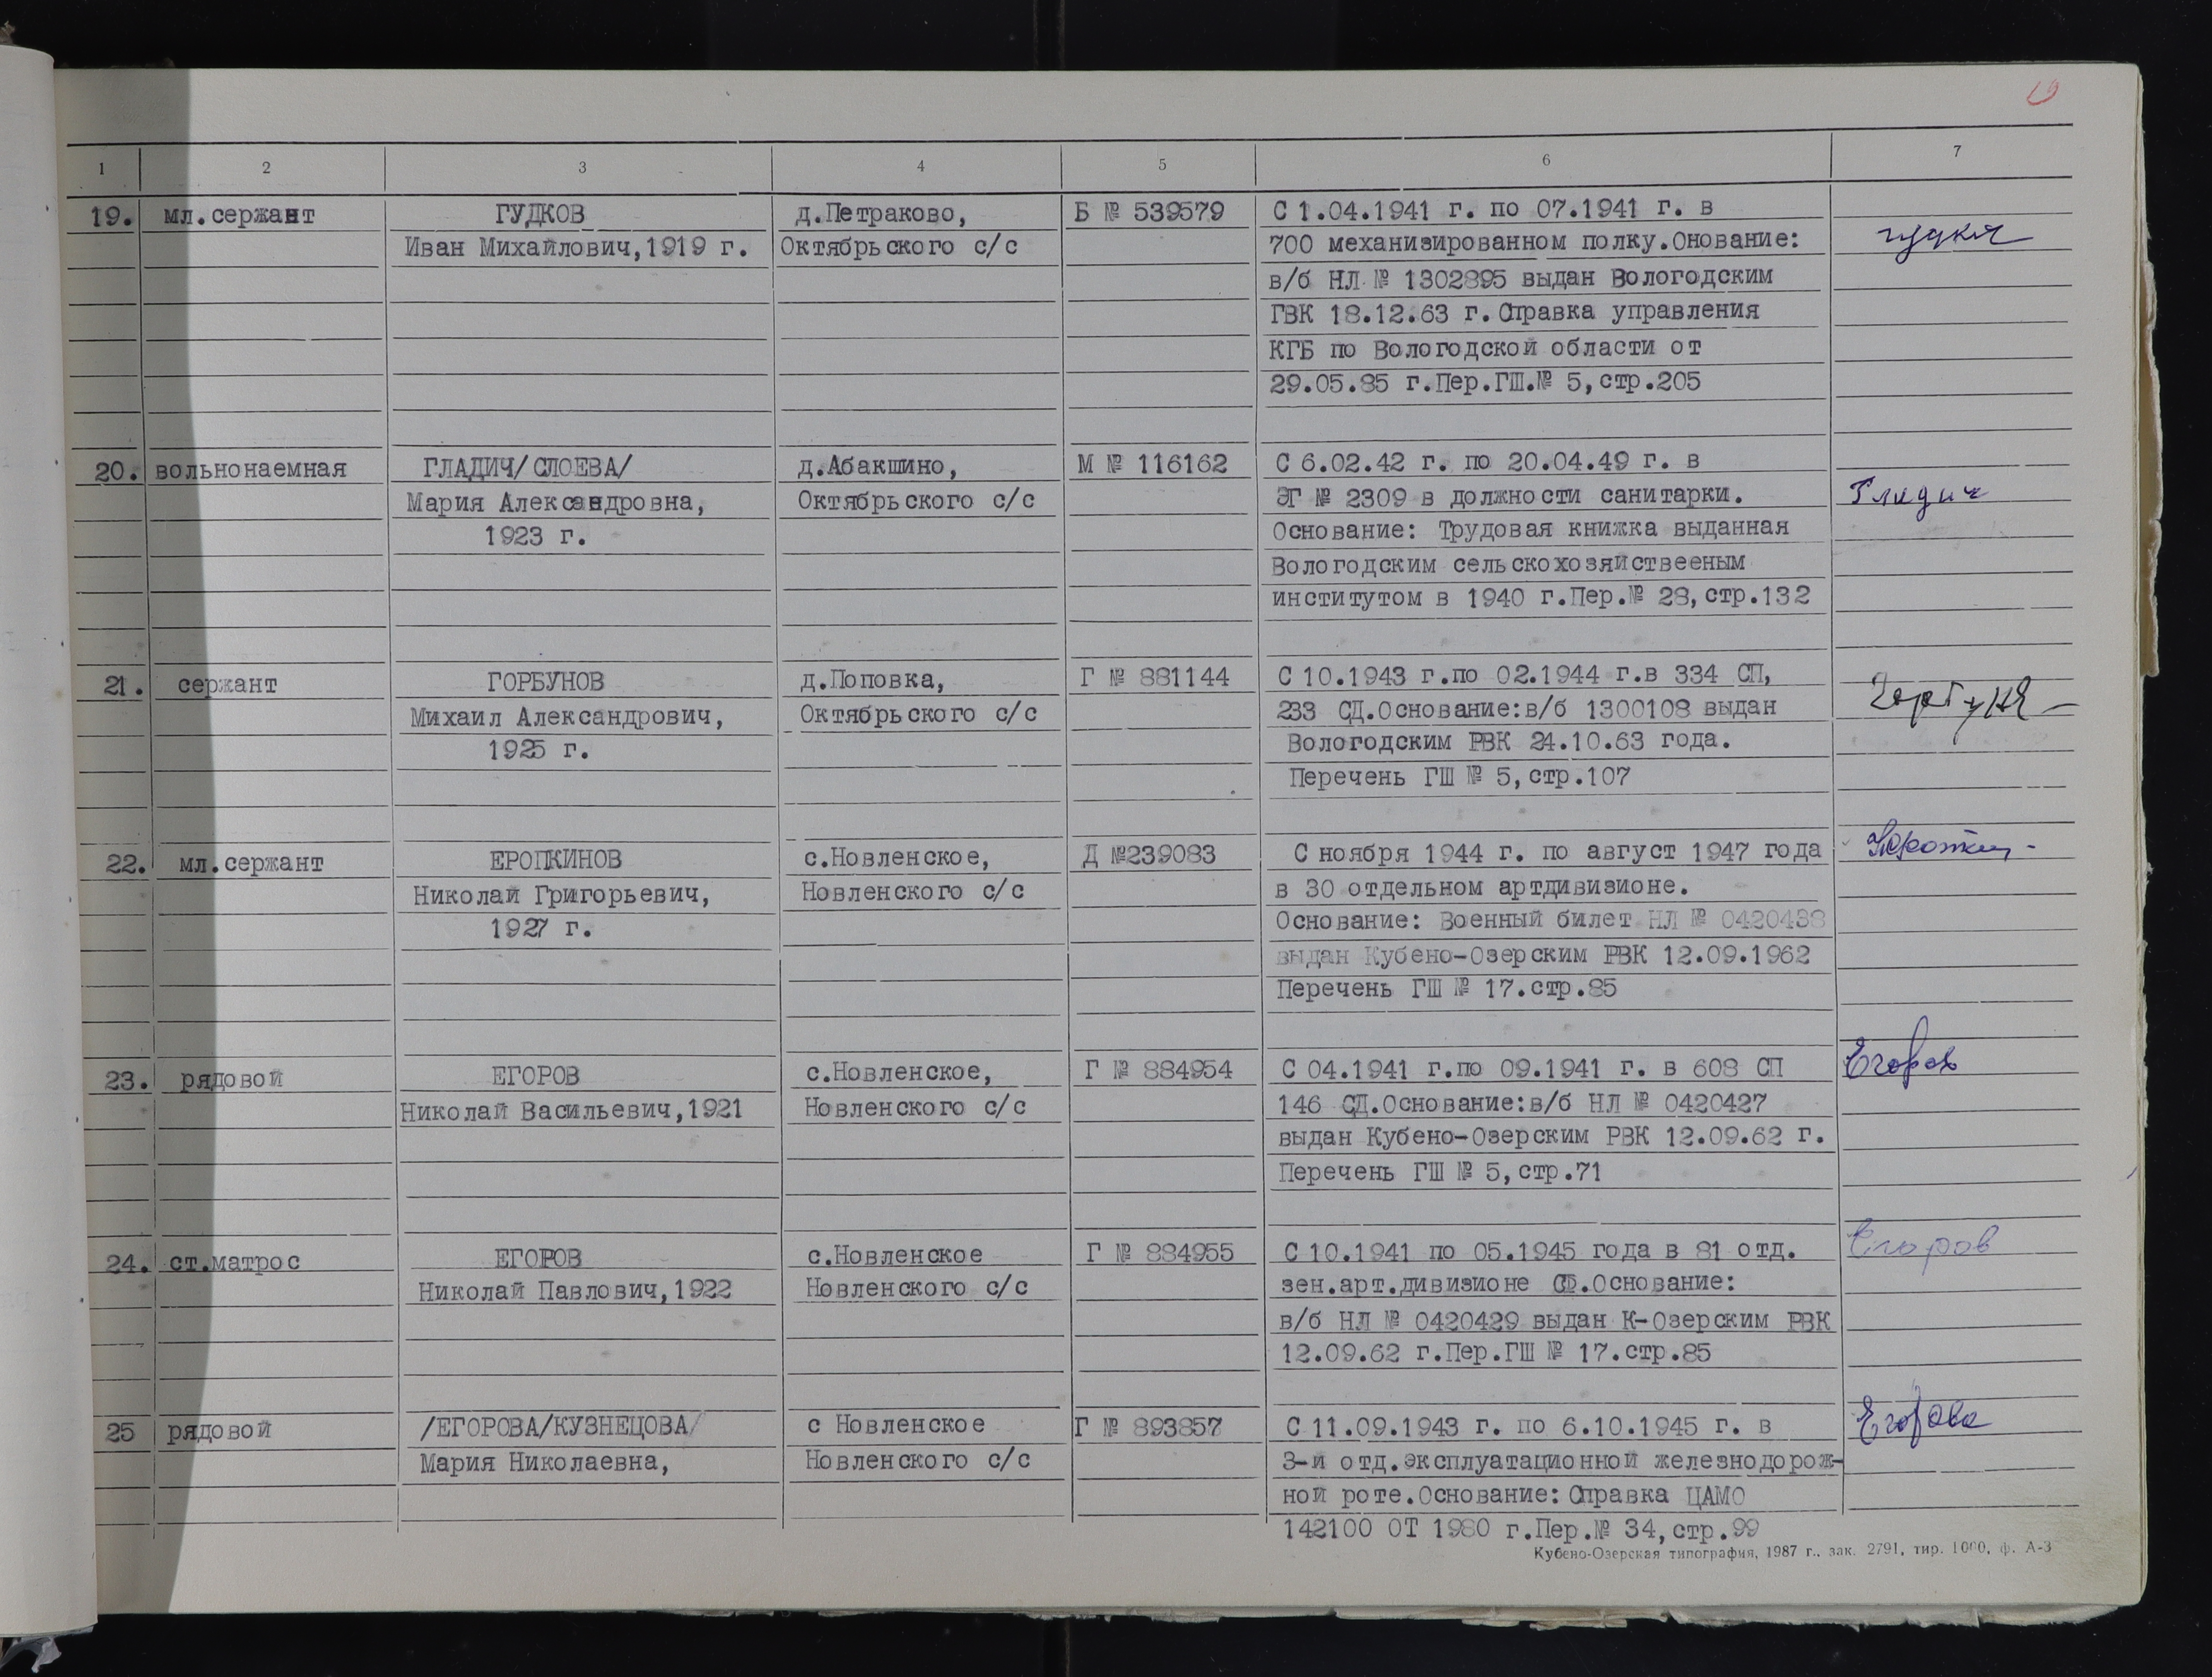 1 2 3 4 5 6 7
19. мл.сержант ГУДКОВ д.Петраково, Б № 539579 С 1.04.1941 г. по 07.1941 г. в
Иван Михайлович,1919 г. Октябрьского с/с 700 механизированном полку.Онование:
в/б НЛ № 1302895 выдан Вологодским
ГВК 18.12.63 г.Справка управления
КГБ по Вологодской области от
29.05.85 г.Пер.ГШ.№ 5,стр.205
20. вольнонаемная ГЛАДИЧ/СЛОЕВА/ д.Абакшино, М № 116162 С 6.02.42 г. по 20.04.49 г. в
Мария Александровна, Октябрьского с/с ЭГ № 2309 в должности санитарки. Гладич
1923 г. Основание: Трудовая книжка выданная
Вологодским сельскохозяйствееным
институтом в 1940 г.Пер.№ 28,стр.132
21. сержант ГОРБУНОВ д.Поповка, Г № 881144 С 10.1943 г.по 02.1944 г.в 334 СП,
Михаил Александрович, Октябрьского с/с 233 СД.Основание:в/б 1300108 выдан
1925 г. Вологодским РВК 24.10.63 года.
Перечень ГШ № 5,стр.107
22. мл.сержант ЕРОПКИНОВ с.Новленское, Д №239083 С ноября 1944 г. по август 1947 года
Николай Григорьевич, Новленского с/с в 30 отдельном артдивизионе.
1927 г. Основание: Военный билет НЛ № 0420438
выдан Кубено-Озерским РВК 12.09.1962
Перечень ГШ № 17.стр.85
23. рядовой ЕГОРОВ с.Новленское, Г № 884954 С 04.1941 г.по 09.1941 г. в 608 СП Егоров
Николай Васильевич,1921 Новленского с/с 146 СД.Основание:в/б НЛ № 0420427
выдан Кубено-Озерским РВК 12.09.62 г.
Перечень ГШ № 5,стр.71
24. ст.матрос ЕГОРОВ с.Новленское Г № 884955 С 10.1941 по 05.1945 года в 81 отд. Егоров
Николай Павлович,1922 Новленского с/с зен.арт.дивизионе СФ.Основание:
в/б НЛ № 0420429 выдан К-Озерским РВК
12.09.62 г.Пер.ГШ № 17.стр.85
25 рядовой /ЕГОРОВА/КУЗНЕЦОВА/ с Новленское Г № 893857 С 11.09.1943 г. по 6.10.1945 г. в Егорова
Мария Николаевна, Новленского с/с 3-й отд.эксплуатационной железнодорож-
ной роте.Основание: Справка ЦАМО
142100 ОТ 1980 г.Пер.№ 34,стр.99
Кубено-Озерская типография, 1987 г., зак. 2791, тир. 1000, ф. А-3